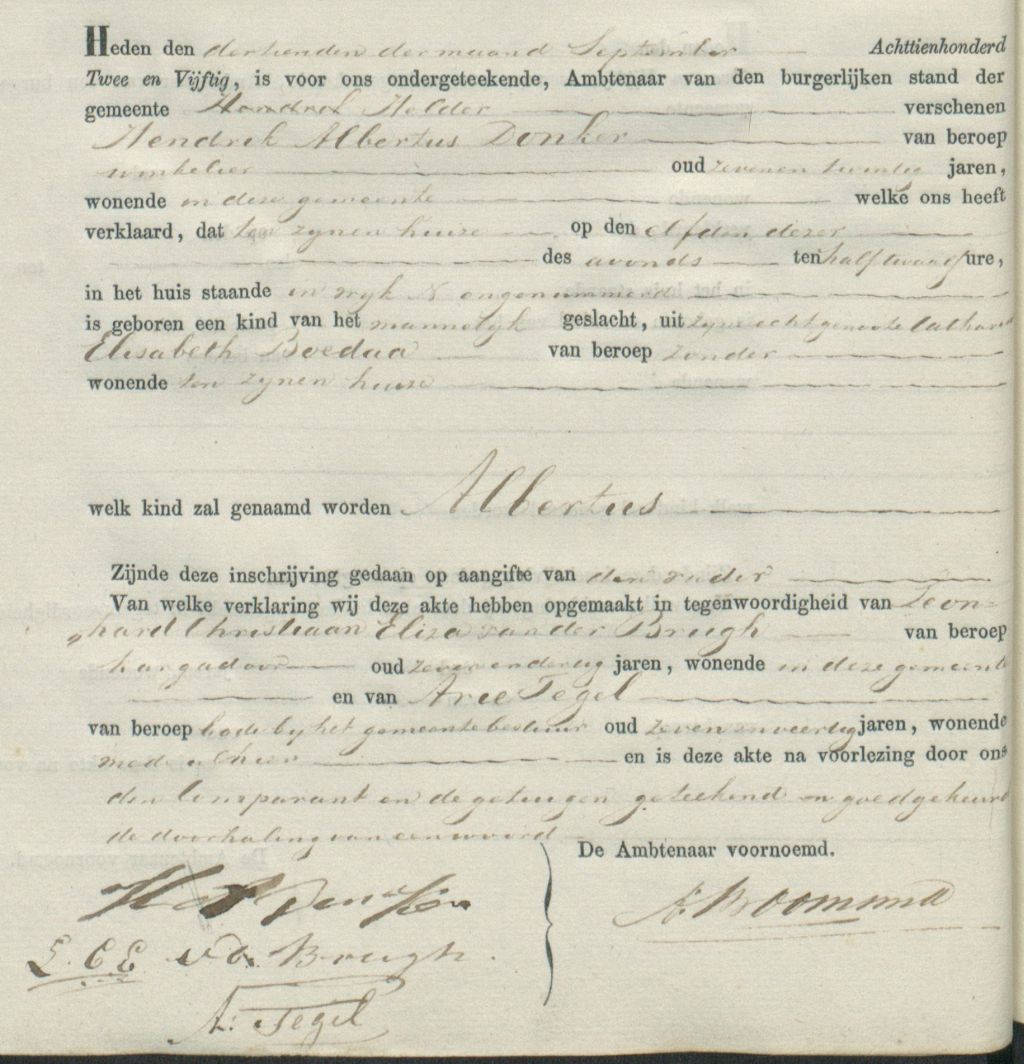 Heden den dertienden der maand September Achttienhonderd
Twee en Vijftig, is voor ons ondergeteekende, Ambtenaar van den burgerlijken stand der
gemeente Helder verschenen
Hendrik Albertus Donker van beroep
winkelier oud zevenentwintig jaren,
wonende in deze gemeente welke ons heeft
verklaard, dat ten zynen huize op den elfden dezer
des avonds ten half twaalf ure,
in het huis staande in wyk N ongenummerd
is geboren een kind van het mannelyk geslacht, uit zyne echtgenoote Catharina
Elisabeth Boedaa van beroep zonder
wonende ten zynen huize
welk kind zal genaamd worden Albertus
Zijnde deze inschrijving gedaan op aangifte van den vader
Van welke verklaring wij deze akte hebben opgemaakt in tegenwoordigheid van Leon-
hard Christiaan Eliza van der Brugh van beroep
oud zevenendertig jaren, wonende in deze gemeente
en van Arie Tegel
van beroep bode by het gemeentebestuur oud zevenenveertig jaren, wonende
mede alhier en is deze akte na voorlezing door ons
den Comparant en de getuigen geteekend en goedgekeurd
de doorhaling van een woord
De Ambtenaar voornoemd.
H A Donker
L. C E v d. Brugh.
A: Tegel